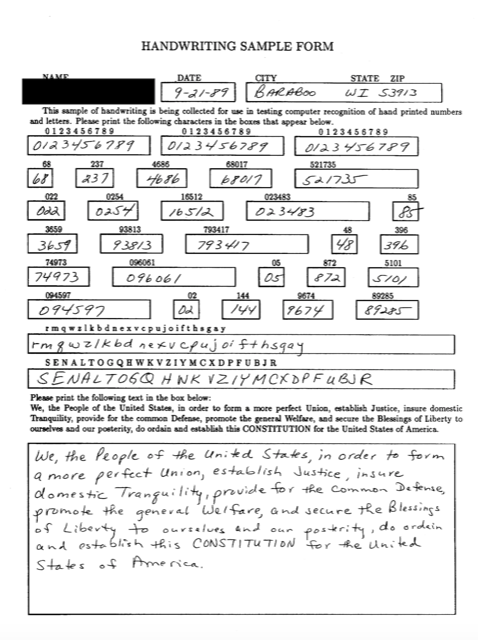 HANDWRITING SAMPLE FORM
NAME DATE CITY STATE ZIP
9-21-89 BARABOO WI 53913
This sample of handwriting is being collected for use in testing computer recognition of hand printed numbers
and letters. Please print the following characters in the boxes that appear below.
0 1 2 3 4 5 6 7 8 9 0 1 2 3 4 5 6 7 8 9 0 1 2 3 4 5 6 7 8 9
0123456789 0123456789 0123456789
68 237 4686 68017 521735
68 237 4686 68017 521735
022 0254 16512 023483 85
022 0254 16512 023483 85
3659 93813 793417 48 396
3659 93813 793417 48 396
74973 096061 05 872 5101
74973 096061 05 872 5101
094597 02 144 9674 89285
094597 02 144 9674 89285
r m q w z l k b d n e x v c p u j o i f t h s g a y
rmqwzlkbdnexvcpujoifthsgay
S E N A L T O G Q H W K V Z I Y M C X D P F U B J R
SENALTOGQHWKVZIYMCXDPFUBJR
Please print the following text in the box below:
We, the People of the United States, in order to form a more perfect Union, establish Justice, insure domestic
Tranquility, provide for the common Defense, promote the general Welfare, and secure the Blessings of Liberty to
ourselves and our posterity, do ordain and establish this CONSTITUTION for the United States of America.
We, the People of the United States, in order to form
a more perfect Union, establish Justice, insure
domestic Tranquility, provide for the Common Defense,
promote the general Welfare, and secure the Blessings
of Liberty to ourselves and our posterity, do ordain
and establish this CONSTITUTION for the United
States of America.